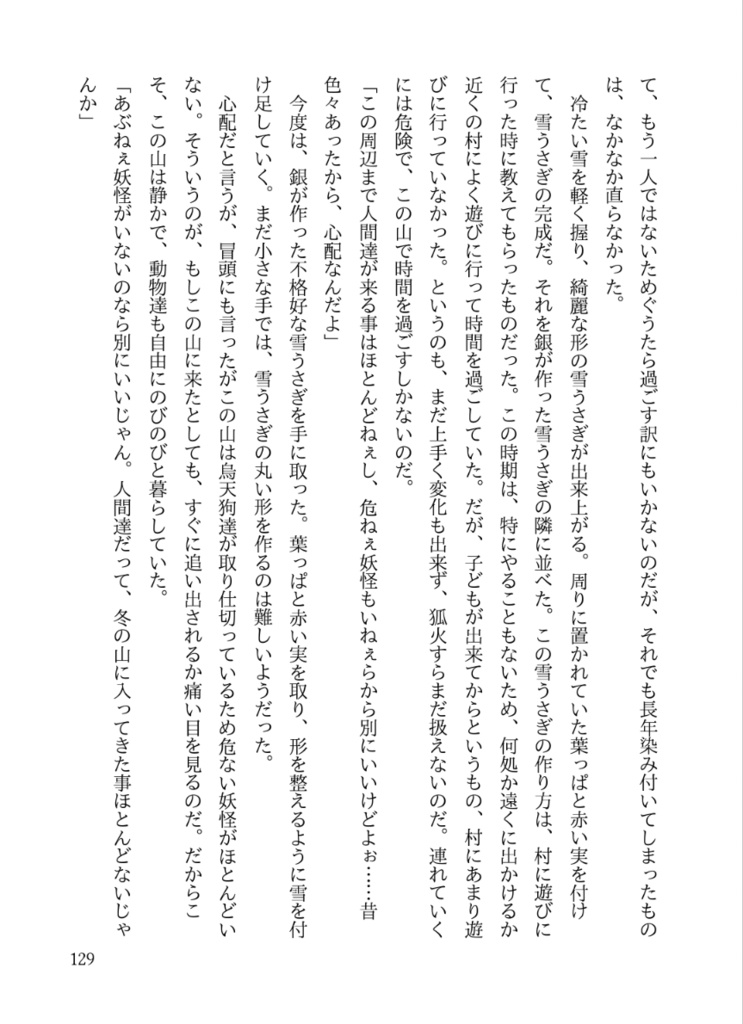 て、もう一人ではないためぐうたら過ごす訳にもいかないのだが、それでも長年染み付いてしまったもの
は、なかなか直らなかった。
　冷たい雪を軽く握り、綺麗な形の雪うさぎが出来上がる。周りに置かれていた葉っぱと赤い実を付け
て、雪うさぎの完成だ。それを銀が作った雪うさぎの隣に並べた。この雪うさぎの作り方は、村に遊びに
行った時に教えてもらったものだった。この時期は、特にやることもないため、何処か遠くに出かけるか
近くの村によく遊びに行って時間を過ごしていた。だが、子どもが出来てからというもの、村にあまり遊
びに行っていなかった。というのも、まだ上手く変化も出来ず、狐火すらまだ扱えないのだ。連れていく
には危険で、この山で時間を過ごすしかないのだ。
「この周辺まで人間達が来る事はほとんどねぇし、危ねぇ妖怪もいねぇらから別にいいけどよぉ……昔
色々あったから、心配なんだよ」
　今度は、銀が作った不格好な雪うさぎを手に取った。葉っぱと赤い実を取り、形を整えるように雪を付
け足していく。まだ小さな手では、雪うさぎの丸い形を作るのは難しいようだった。
　心配だと言うが、冒頭にも言ったがこの山は烏天狗達が取り仕切っているため危ない妖怪がほとんどい
ない。そういうのが、もしこの山に来たとしても、すぐに追い出されるか痛い目を見るのだ。だからこ
そ、この山は静かで、動物達も自由にのびのびと暮らしていた。
「あぶねぇ妖怪がいないのなら別にいいじゃん。人間達だって、冬の山に入ってきた事ほとんどないじゃ
んか」
129